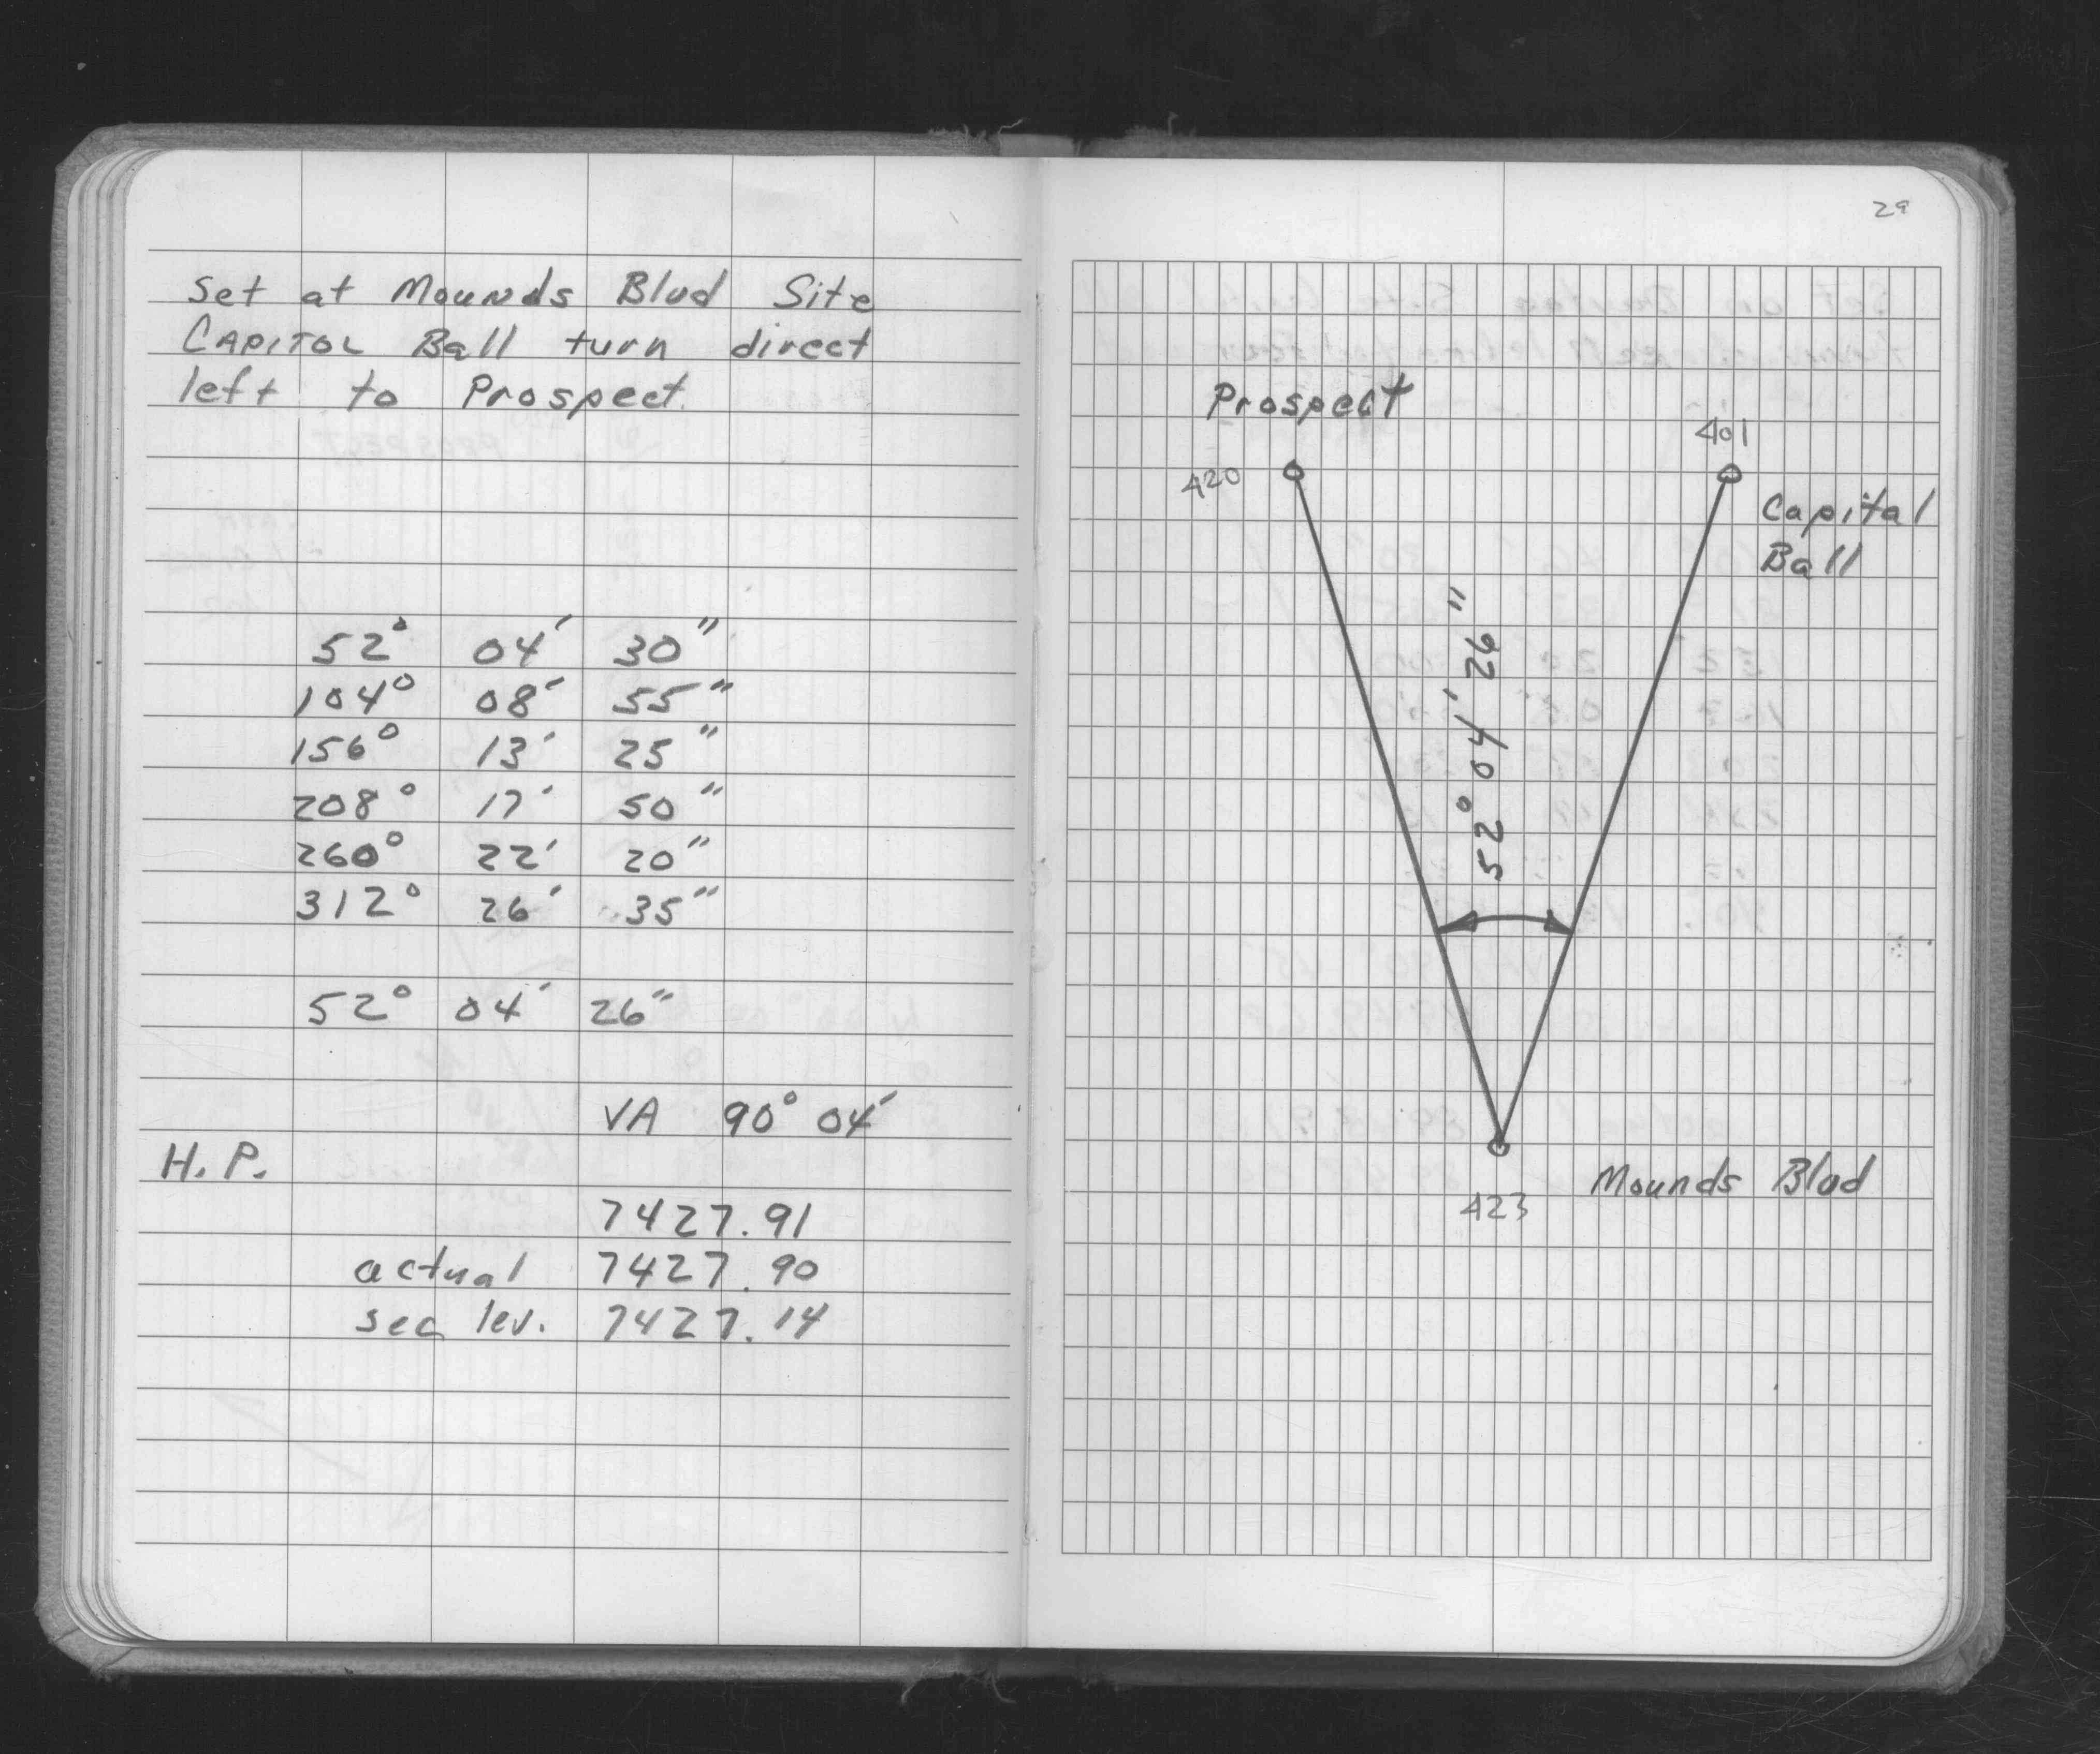 Set at Mounds Blvd Site
CAPITOL Ball turn direct
left to Prospect.
52° 04' 30"
104° 08' 55"
156° 13' 25"
208° 17' 50"
260° 22' 20"
312° 26' 35"
52° 04' 26"
VA 90° 04'
H. P.
7427.91
actual 7427.90
sea lev. 7427.14
29
Prospect
401
420
Capital
Ball
52° 04' 26"
Mounds Blvd
423